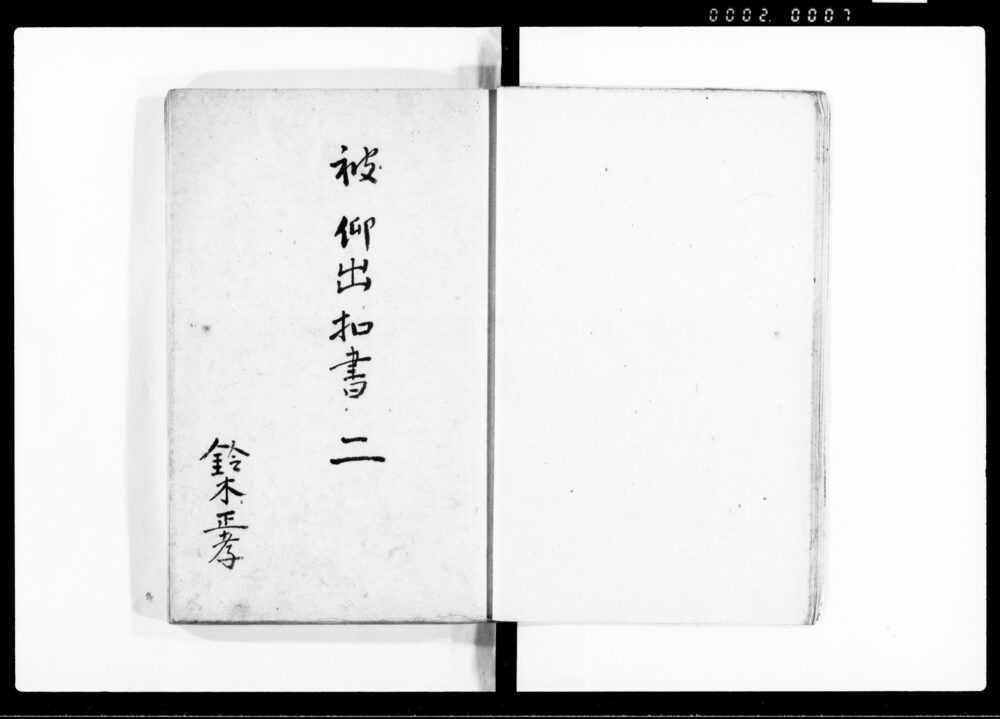 0002 0007
被 仰出扣書 二
鈴木正孝